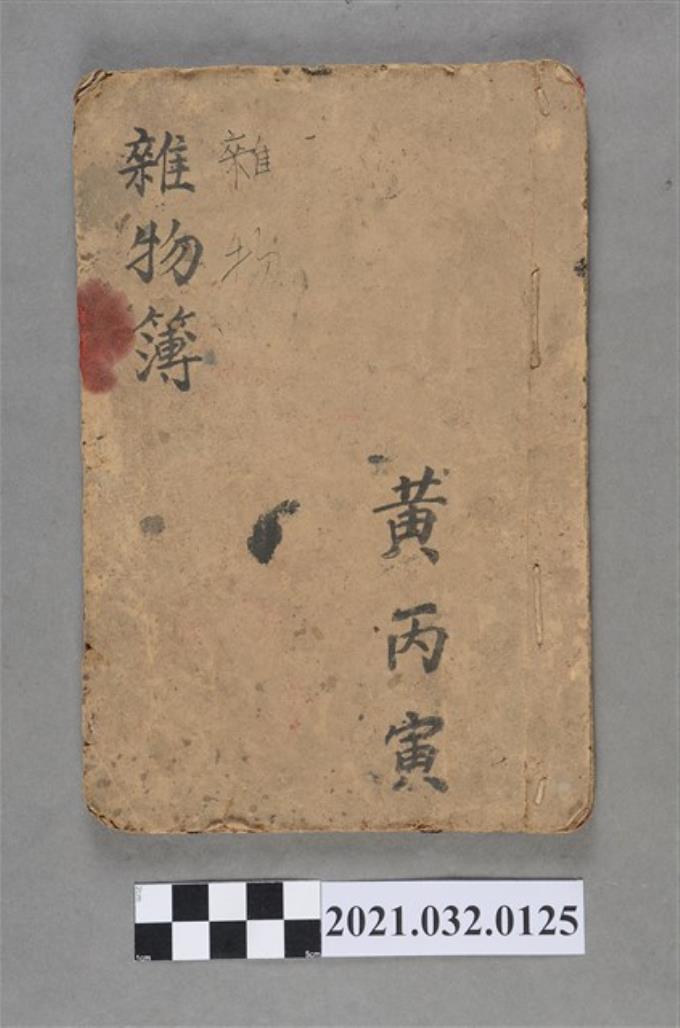 黄丙寅
雜物
雜物簿
2021.032.0125